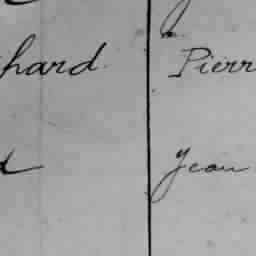 hard Pierr
d Jean